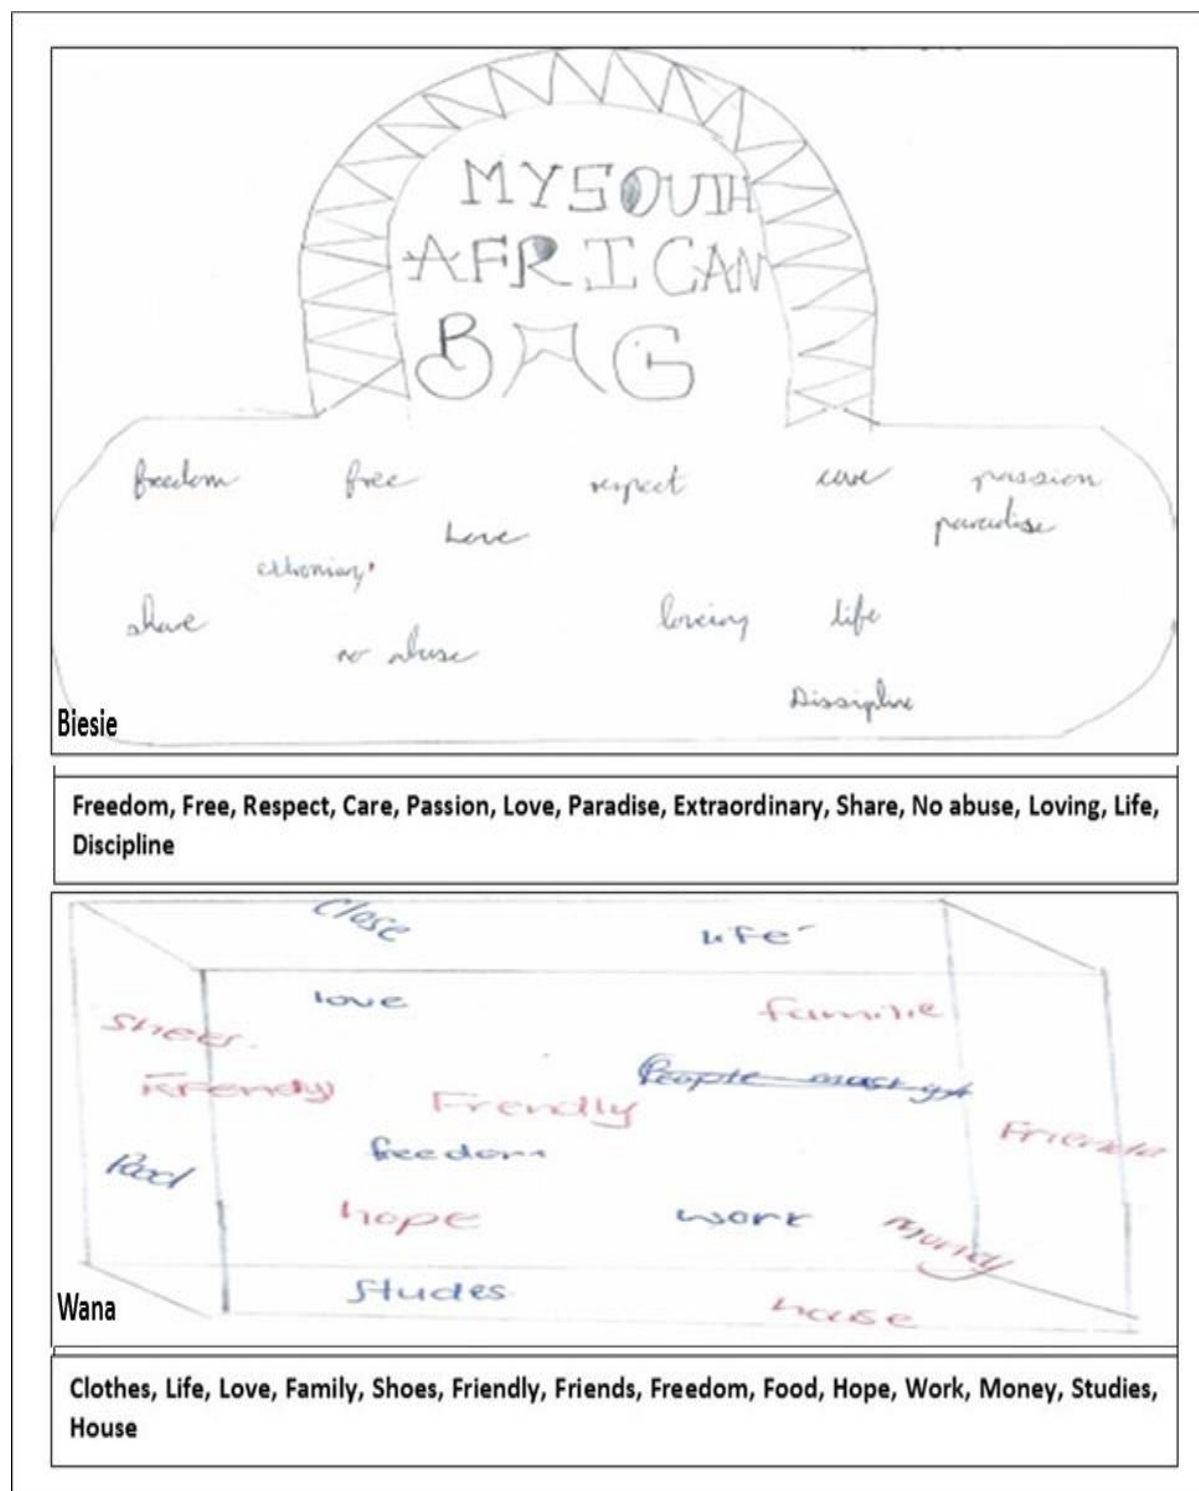 MY SOUTH
AFRICAN
BAG
freedom free respect care passion
Love paradise
share loveing life
no abuse
Dissipline
Biesie
Freedom, Free, Respect, Care, Passion, Love, Paradise, Extraordinary, Share, No abuse, Loving, Life,
Discipline
Close life
love familie
Shees
Frendly Frendly People must
Friends
freedom
Food
hope work
Studes
house
Wana
Clothes, Life, Love, Family, Shoes, Friendly, Friends, Freedom, Food, Hope, Work, Money, Studies,
House